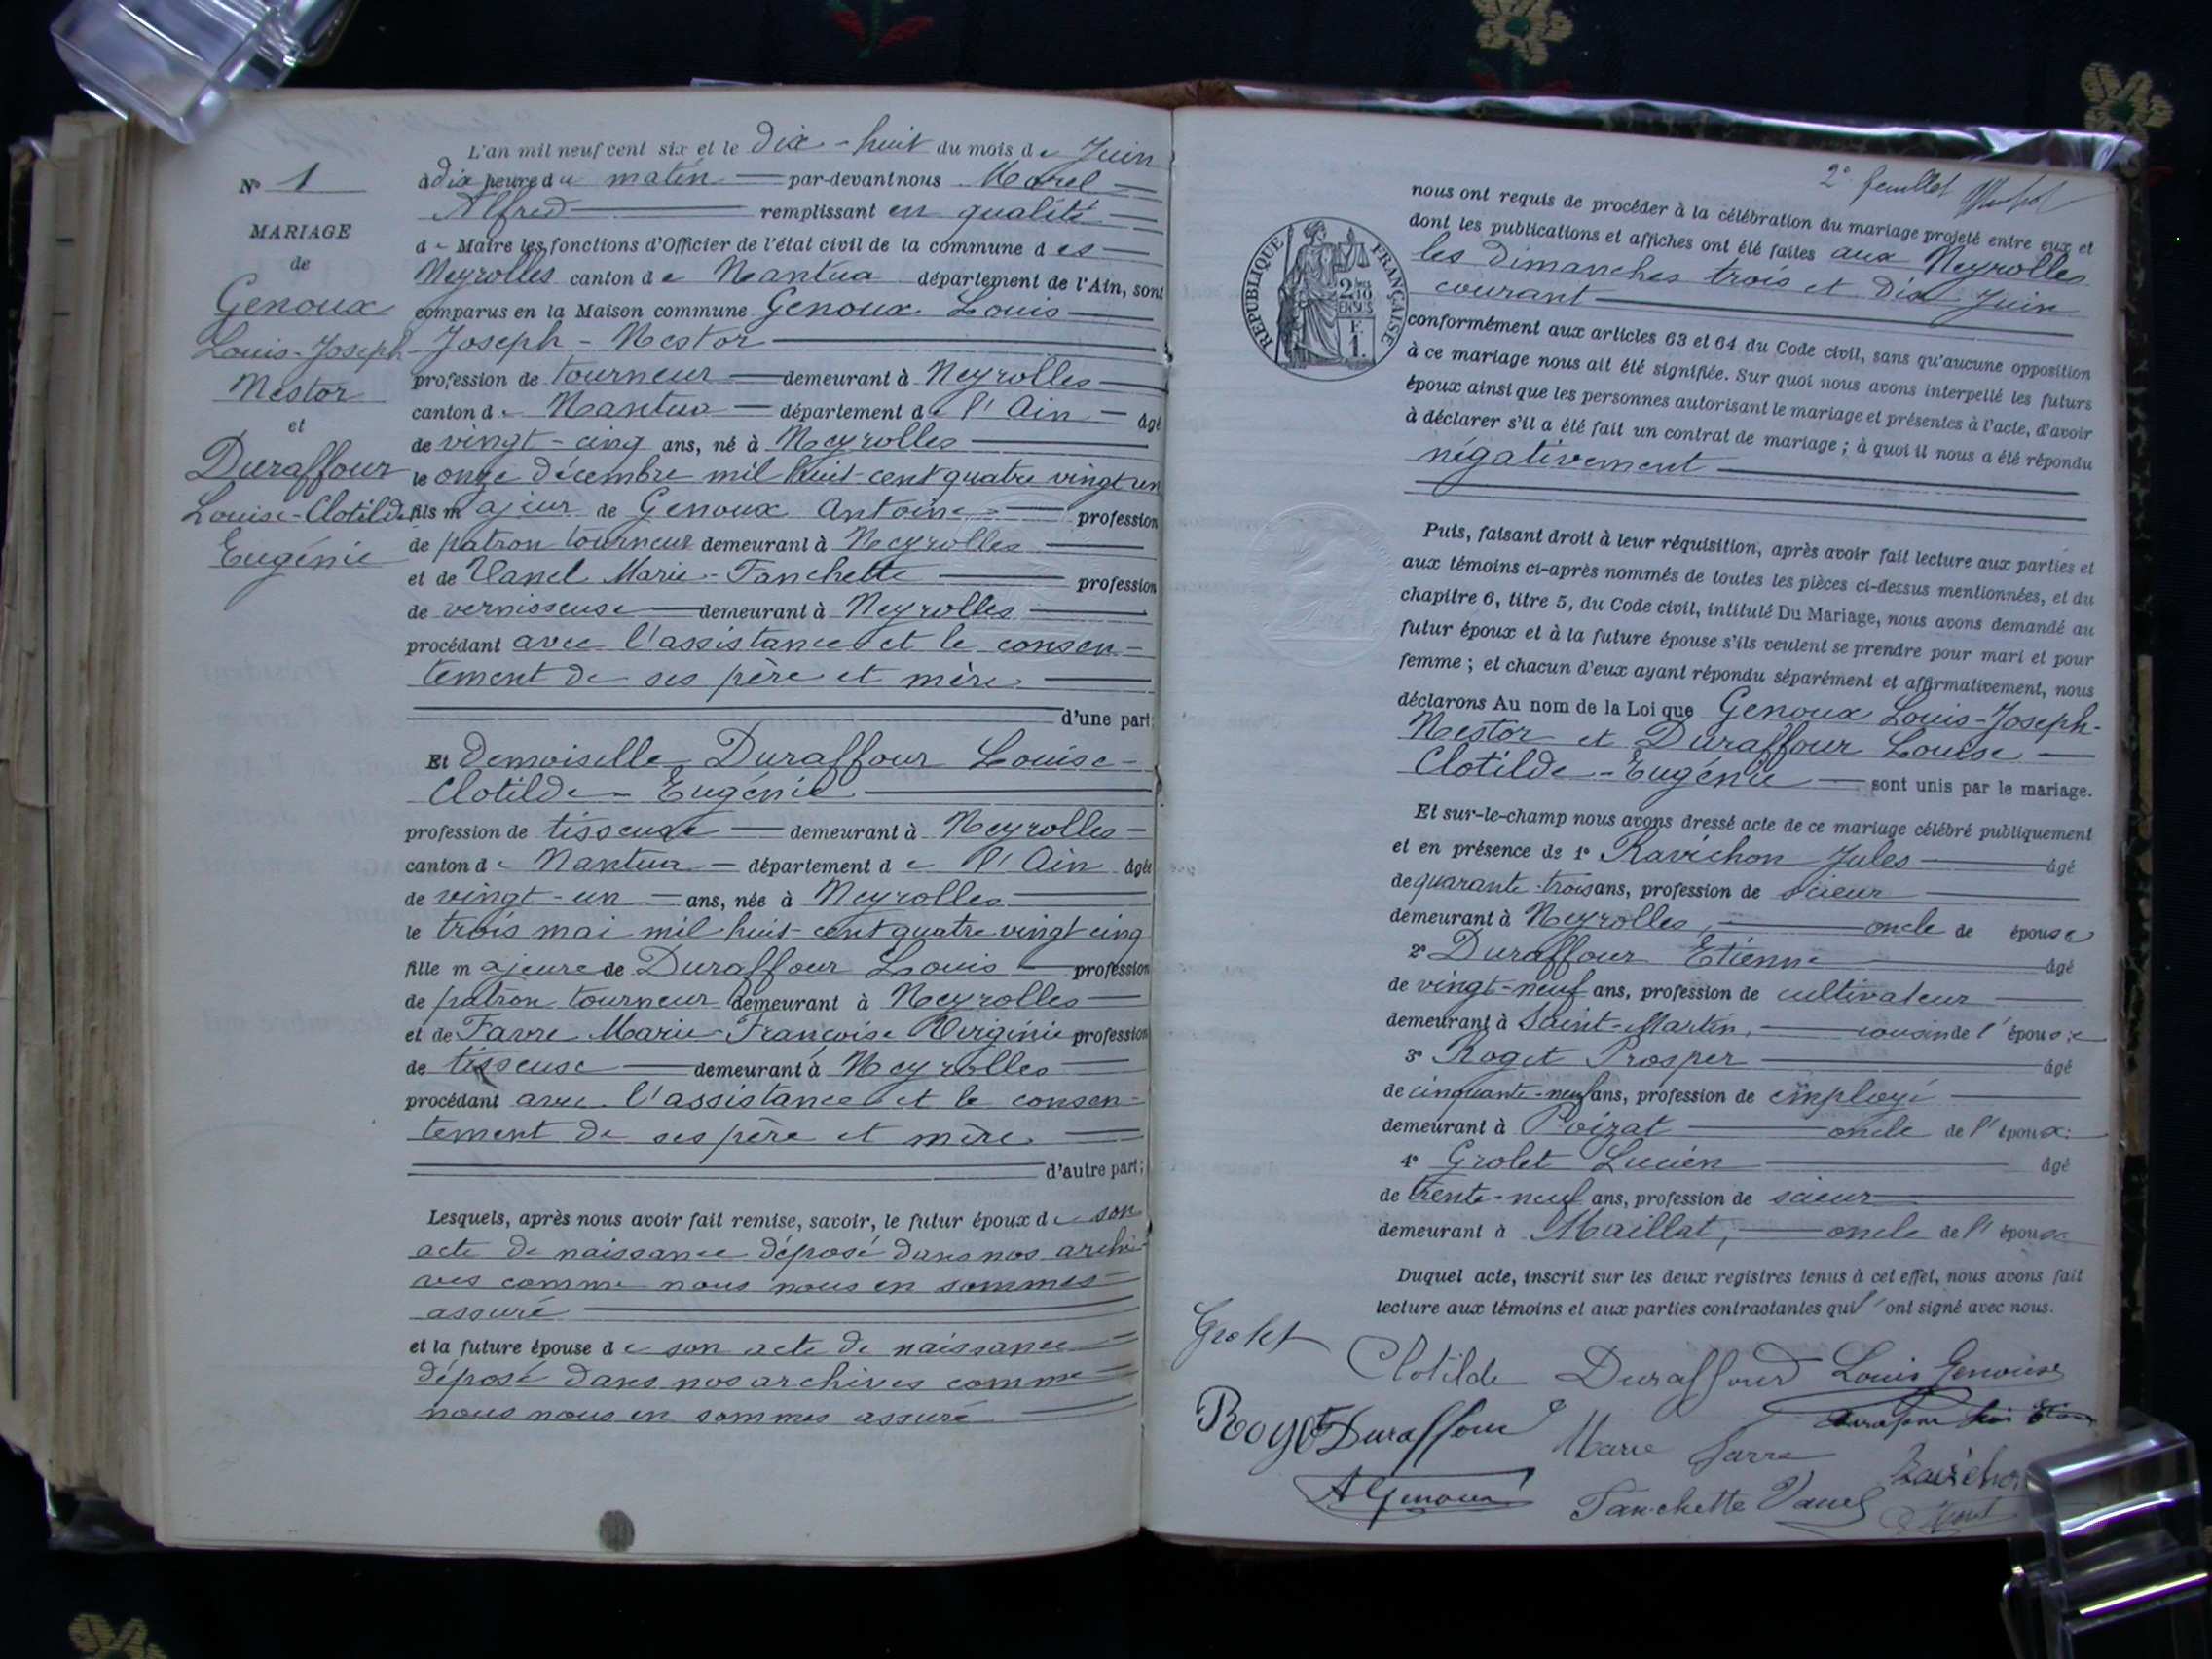 N° 1
MARIAGE
de
Genoux
Louis-Joseph
Nestor
et
Duraffour
Louise-Clotilde
Eugénie
L'an mil neuf cent six et le dix-huit du mois de Juin
à dix heure du matin par-devant nous Morel
Alfred remplissant en qualité
de Maire les fonctions d'Officier de l'état civil de la commune des
Neyrolles canton de Nantua département de l'Ain, sont
comparus en la Maison commune Genoux Louis
Joseph-Nestor
profession de tourneur demeurant à Neyrolles
canton de Nantua département de l'Ain âgé
de vingt-cinq ans, né à Neyrolles
le onze décembre mil huit-cent quatre vingt un
fils majeur de Genoux Antoine profession
de patron tourneur demeurant à Neyrolles
et de Vanel Marie-Fanchette profession
de vernisseuse demeurant à Neyrolles
procédant avec l'assistance et le consen-
tement de ses père et mère
d'une part;
Et Demoiselle Duraffour Louise-
Clotilde-Eugénie
profession de tisseuse demeurant à Neyrolles
canton de Nantua département de l'Ain âgée
de vingt-un ans, née à Neyrolles
le trois mai mil huit-cent quatre vingt cinq
fille majeure de Duraffour Louis profession
de patron tourneur demeurant à Neyrolles
et de Favre Marie-Françoise Virginie profession
de tisseuse demeurant à Neyrolles
procédant avec l'assistance et le consen-
tement de ses père et mère
d'autre part;
Lesquels, après nous avoir fait remise, savoir, le futur époux de son
acte de naissance déposé dans nos archi-
ves comme nous nous en sommes
assuré
et la future épouse de son acte de naissance
déposé dans nos archives comme
nous nous en sommes assuré
2e feuillet
REPUBLIQUE FRANÇAISE
2/10
EN SUS
F.
1.
nous ont requis de procéder à la célébration du mariage projeté entre eux et
dont les publications et affiches ont été faites aux Neyrolles
les dimanches trois et dix Juin
courant
conformément aux articles 63 et 64 du Code civil, sans qu'aucune opposition
à ce mariage nous ait été signifiée. Sur quoi nous avons interpellé les futurs
époux ainsi que les personnes autorisant le mariage et présentes à l'acte, d'avoir
à déclarer s'il a été fait un contrat de mariage; à quoi il nous a été répondu
négativement
Puis, faisant droit à leur réquisition, après avoir fait lecture aux parties et
aux témoins ci-après nommés de toutes les pièces ci-dessus mentionnées, et du
chapitre 6, titre 5, du Code civil, intitulé Du Mariage, nous avons demandé au
futur époux et à la future épouse s'ils veulent se prendre pour mari et pour
femme; et chacun d'eux ayant répondu séparément et affirmativement, nous
déclarons Au nom de la Loi que Genoux Louis-Joseph-
Nestor et Duraffour Louise
Clotilde-Eugénie sont unis par le mariage.
Et sur-le-champ nous avons dressé acte de ce mariage célébré publiquement
et en présence de 1° Ravichon Jules âgé
de quarante-trois ans, profession de scieur
demeurant à Neyrolles, oncle de épouse
2° Duraffour Etienne âgé
de vingt-neuf ans, profession de cultivateur
demeurant à Saint-Martin, cousin de l'épouse
3° Roget Prosper âgé
de cinquante-neuf ans, profession de employé
demeurant à Poizat oncle de l'époux:
4° Grolet Lucien âgé
de trente-neuf ans, profession de scieur
demeurant à Maillat, oncle de l'épouse
Duquel acte, inscrit sur les deux registres tenus à cet effet, nous avons fait
lecture aux témoins et aux parties contractantes qui l'ont signé avec nous.
Grolet
Clotilde Duraffour Louis Genoux
Roget Duraffour
Marie Favre Ravichon
A Genoux Fanchette Vanel